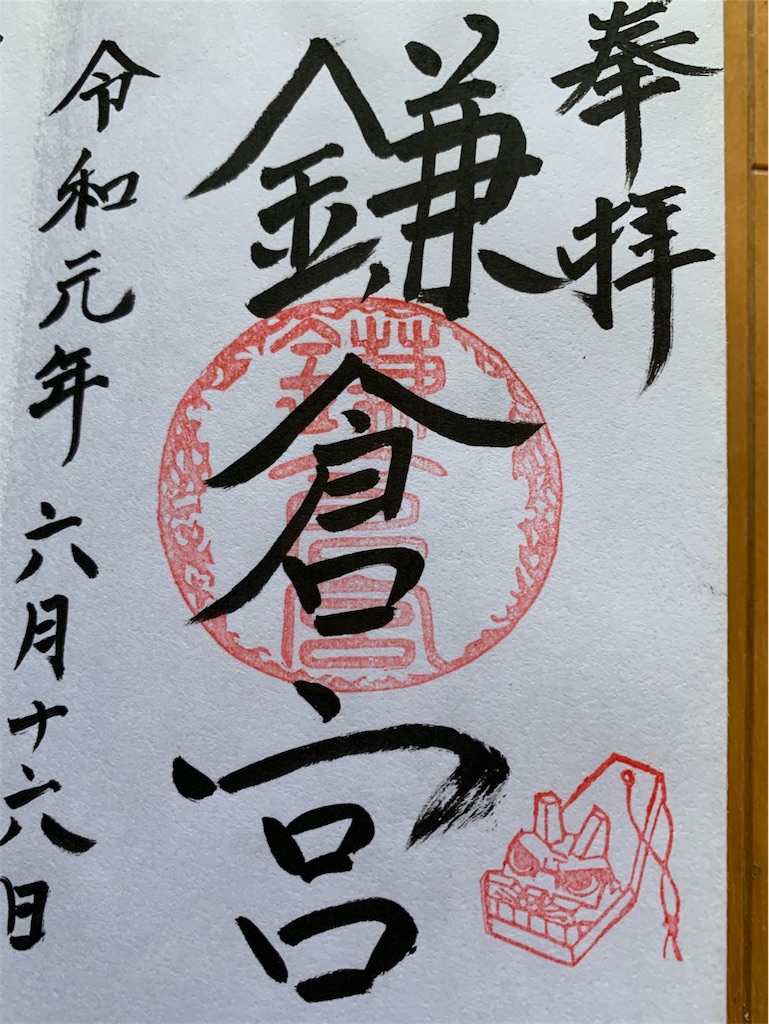 奉拝
鎌倉宮
鎌倉宮
令和元年六月十六日